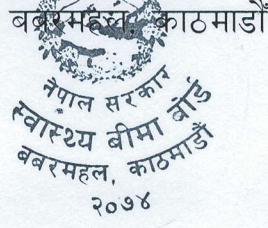 बबरमहल, काठमाडौं
नेपाल सरकार
स्वास्थ्य बीमा बोर्ड
बबरमहल, काठमाडौं
२०७४